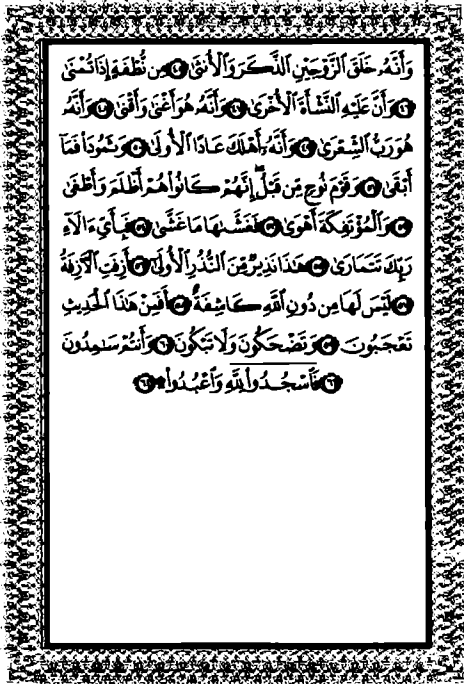 وَأَنَّهُۥ خَلَقَ ٱلزَّوْجَيْنِ ٱلذَّكَرَ وَٱلْأُنثَىٰ ٤٥ مِن نُّطْفَةٍ إِذَا تُمْنَىٰ
٤٦ وَأَنَّ عَلَيْهِ ٱلنَّشْأَةَ ٱلْأُخْرَىٰ ٤٧ وَأَنَّهُۥ هُوَ أَغْنَىٰ وَأَقْنَىٰ ٤٨ وَأَنَّهُۥ
هُوَ رَبُّ ٱلشِّعْرَىٰ ٤٩ وَأَنَّهُۥٓ أَهْلَكَ عَادًا ٱلْأُولَىٰ ٥٠ وَثَمُودَا۟ فَمَآ
أَبْقَىٰ ٥١ وَقَوْمَ نُوحٍ مِّن قَبْلُ ۖ إِنَّهُمْ كَانُوا۟ هُمْ أَظْلَمَ وَأَطْغَىٰ
٥٢ وَٱلْمُؤْتَفِكَةَ أَهْوَىٰ ٥٣ فَغَشَّىٰهَا مَا غَشَّىٰ ٥٤ فَبِأَىِّ ءَالَآءِ
رَبِّكَ تَتَمَارَىٰ ٥٥ هَٰذَا نَذِيرٌ مِّنَ ٱلنُّذُرِ ٱلْأُولَىٰٓ ٥٦ أَزِفَتِ ٱلْءَازِفَةُ
٥٧ لَيْسَ لَهَا مِن دُونِ ٱللَّهِ كَاشِفَةٌ ٥٨ أَفَمِنْ هَٰذَا ٱلْحَدِيثِ
تَعْجَبُونَ ٥٩ وَتَضْحَكُونَ وَلَا تَبْكُونَ ٦٠ وَأَنتُمْ سَٰمِدُونَ
٦١ فَٱسْجُدُوا۟ لِلَّهِ وَٱعْبُدُوا۟ ۩ ٦٢